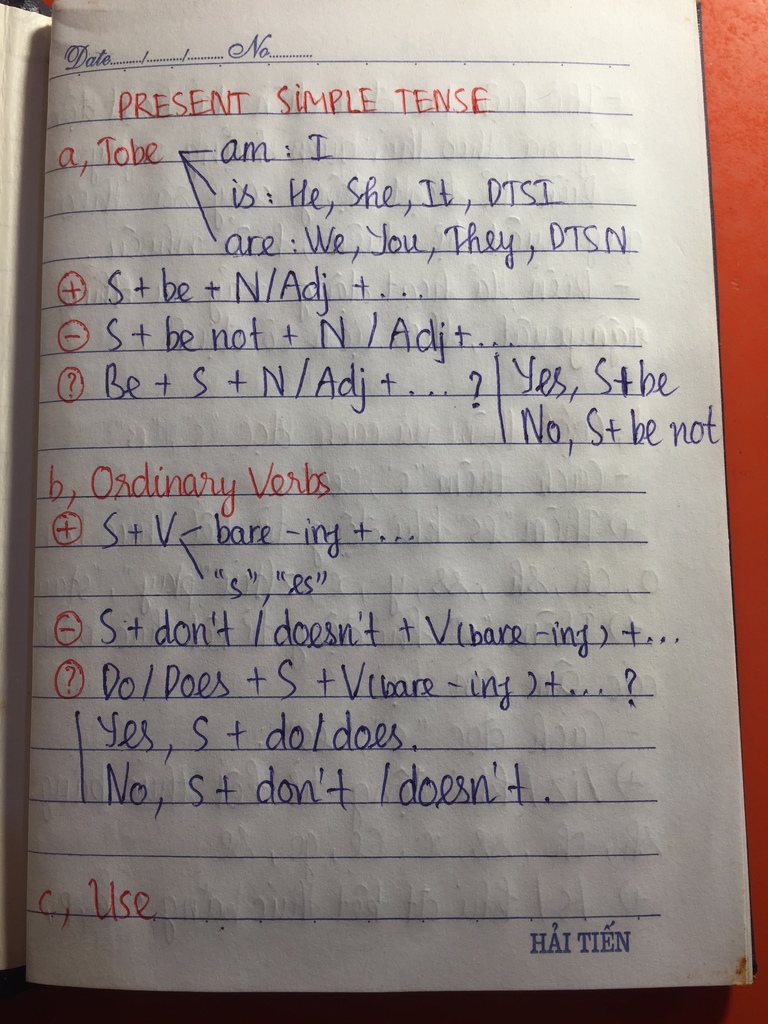 Date........../........../.......... No............
PRESENT SIMPLE TENSE
a, Tobe am : I
is : He, She, It, DTSI
are : We, You, They, DTSN
+ S + be + N/Adj + ...
- S + be not + N / Adj + ...
? Be + S + N/Adj + ... ? | Yes, S + be
No, S + be not
b, Ordinary Verbs
+ S + V bare -ing + ...
"s", "es"
- S + don't / doesn't + V(bare -ing) + ...
? Do / Does + S + V(bare -ing) + ... ?
Yes, S + do / does.
No, S + don't / doesn't.
c, Use
HẢI TIẾN